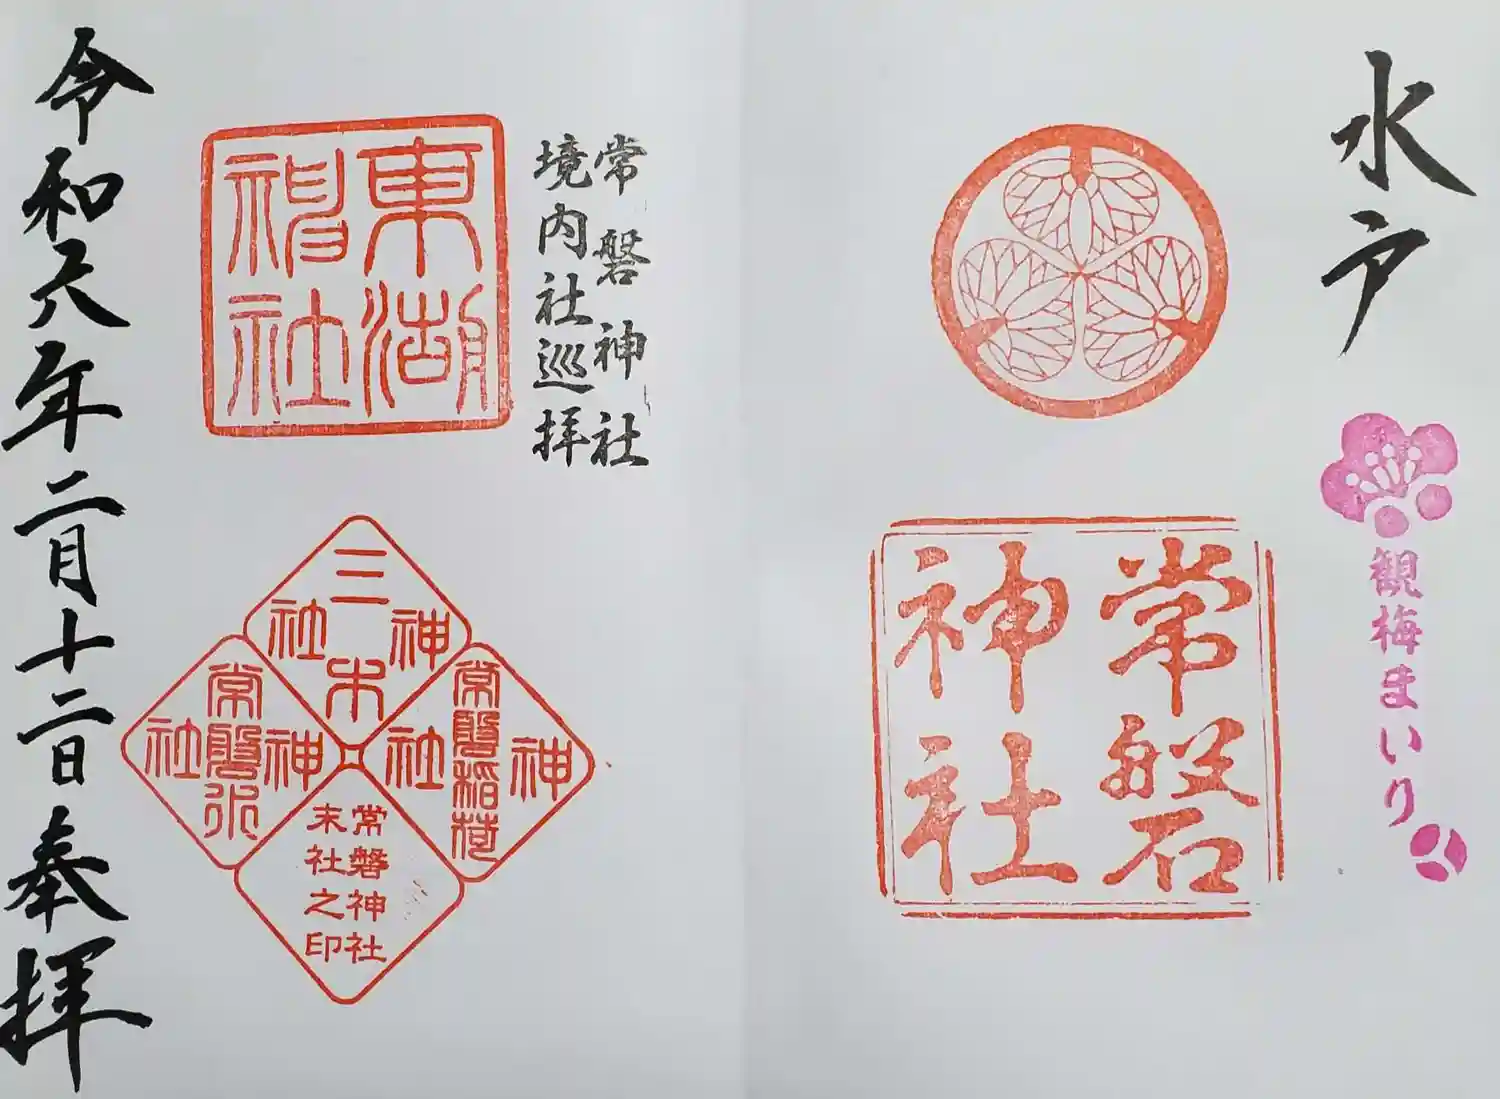 水戸
観梅まいり
常磐
神社
常磐神社
境内社巡拝
東湖
神社
三木
神社
常磐稲荷
神社
常磐水
神社
常磐神社
末社之印
令和六年二月十二日奉拝